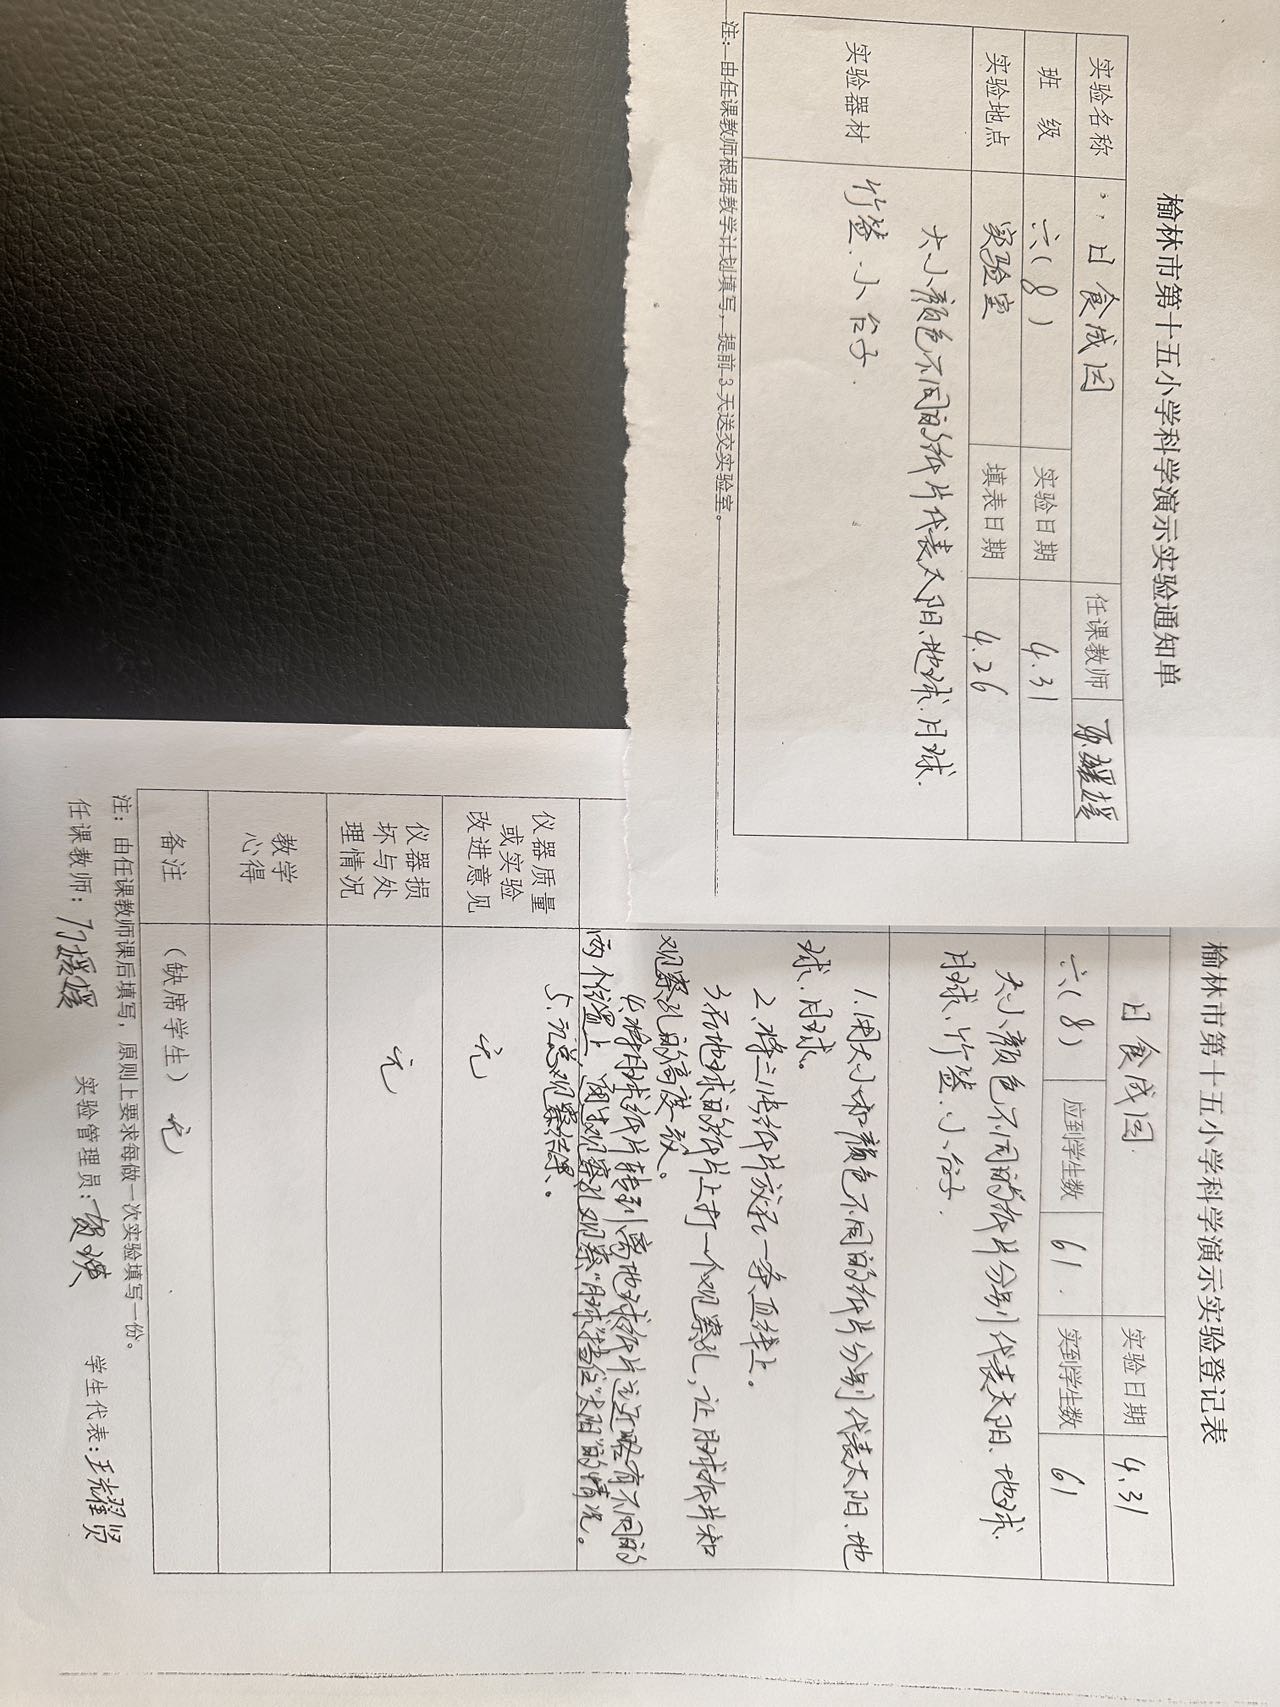 榆林市第十五小学科学演示实验通知单
实验名称 日食成因 任课教师 媛媛
班 级 六(8) 实验日期 4.31
实验地点 实验室 填表日期 4.26
实验器材 大小颜色不同的纸片代表太阳、地球、月球.
竹签、小台子.
注:由任课教师根据教学计划填写,提前 3 天送交实验室。
榆林市第十五小学科学演示实验登记表
日食成因. 实验日期 4.31
六(8) 应到学生数 61. 实到学生数 61
大小颜色不同的纸片分别代表太阳、地球.
月球、竹签、小台子.
1.用大小和颜色不同的纸片分别代表太阳、地
球、月球。
2.将三张纸片放在一条直线上。
3.在地球的纸片上打一个观察孔,让月球纸片和
观察孔的高度一致。
4.将月球纸片转到离地球纸片远近略有不同的
两个位置上,通过观察孔观察"月球"挡住"太阳"的情况。
5.汇总观察结果、。
仪器质量
或实验
改进意见
无
仪器损
坏与处
理情况
无
教学
心得
备注 (缺席学生) 无
注:由任课教师课后填写,原则上要求每做一次实验填写一份。
任课教师: 媛媛 实验管理员:贺瑛 学生代表:王耀贤